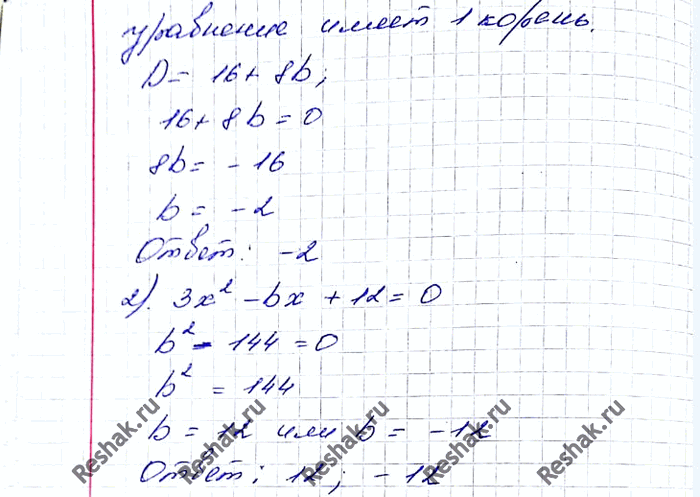 уравнение имеет 1 корень.
D = 16 + 8b;
16 + 8b = 0
8b = - 16
b = - 2
Ответ: -2
2). 3x² - bx + 12 = 0
b² - 144 = 0
b² = 144
b = 12 или b = - 12
Ответ: 12; - 12
Reshak.ru
Reshak.ru
Reshak.ru
Reshak.ru
Reshak.ru